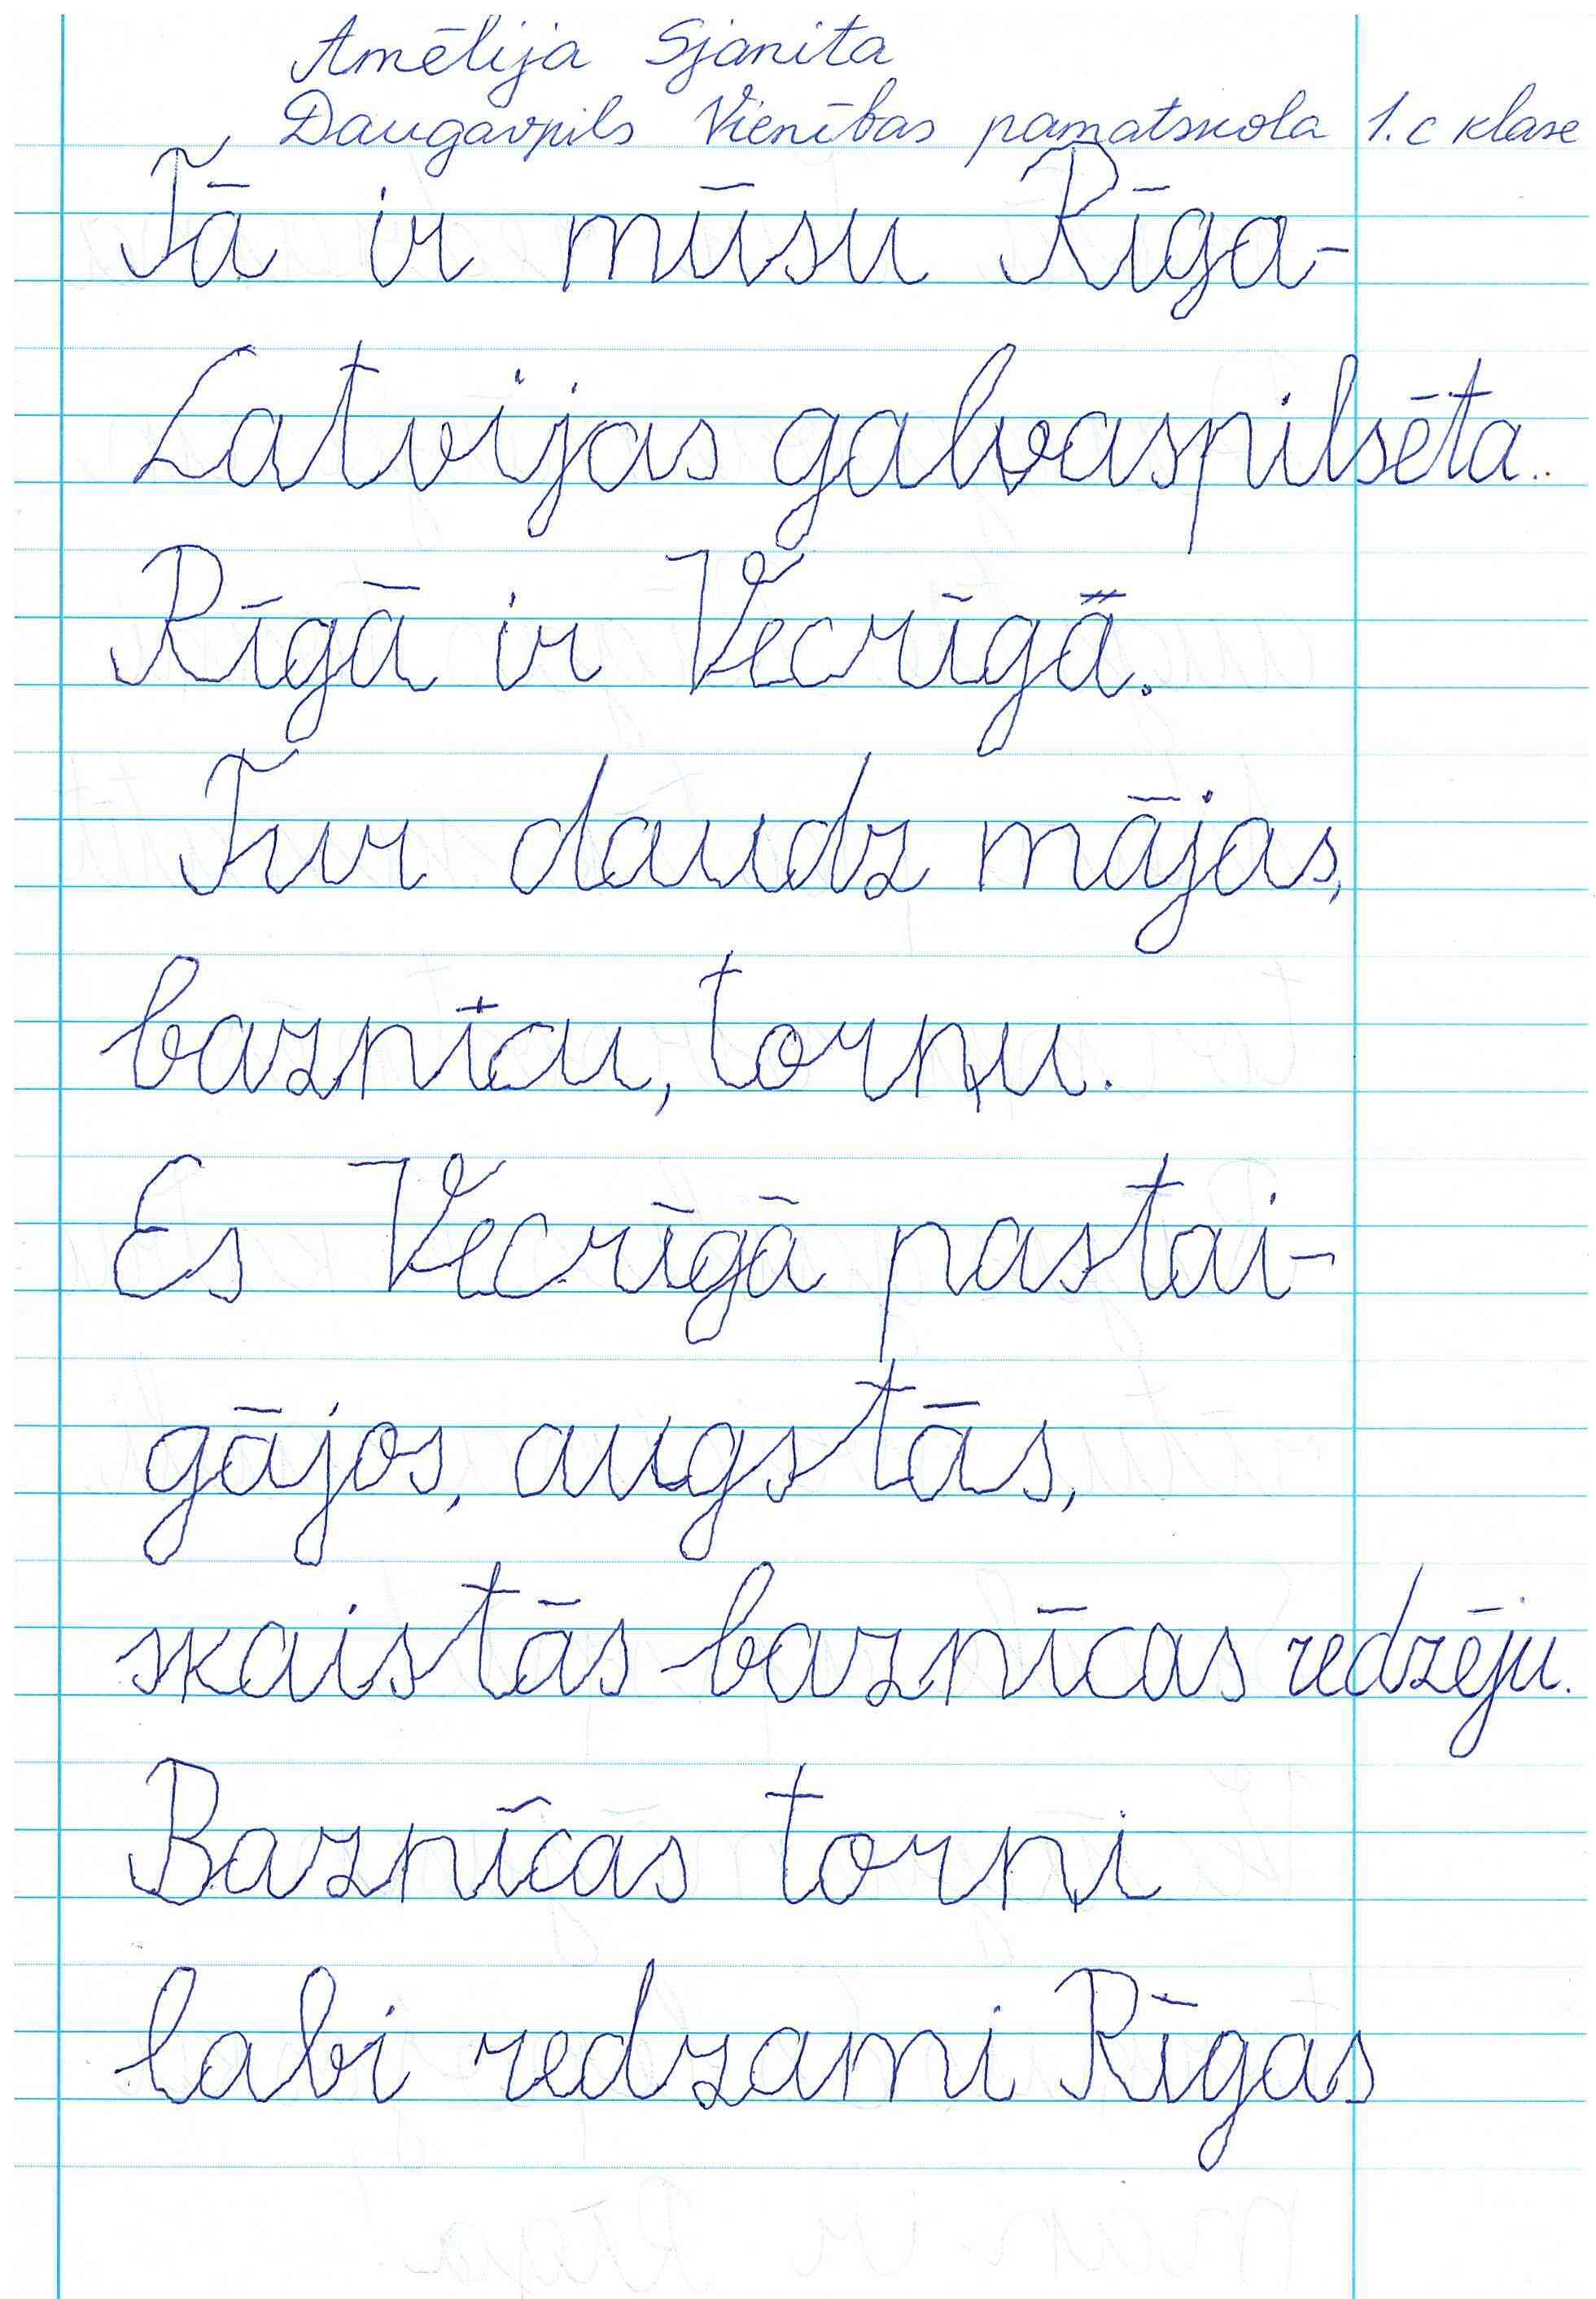 Amēlija Sjanita
Daugavpils Vienības pamatskola 1.c klase
Tā ir mūsu Rīga-
Latvijas galvaspilsēta.
Rīgā ir Vecrīgā.
Tur daudz mājas,
baznīcu, torņu.
Es Vecrīgā pastai-
gājos, augstās,
skaistās baznīcas redzēju.
Baznīcas torņi
labi redzami Rīgas